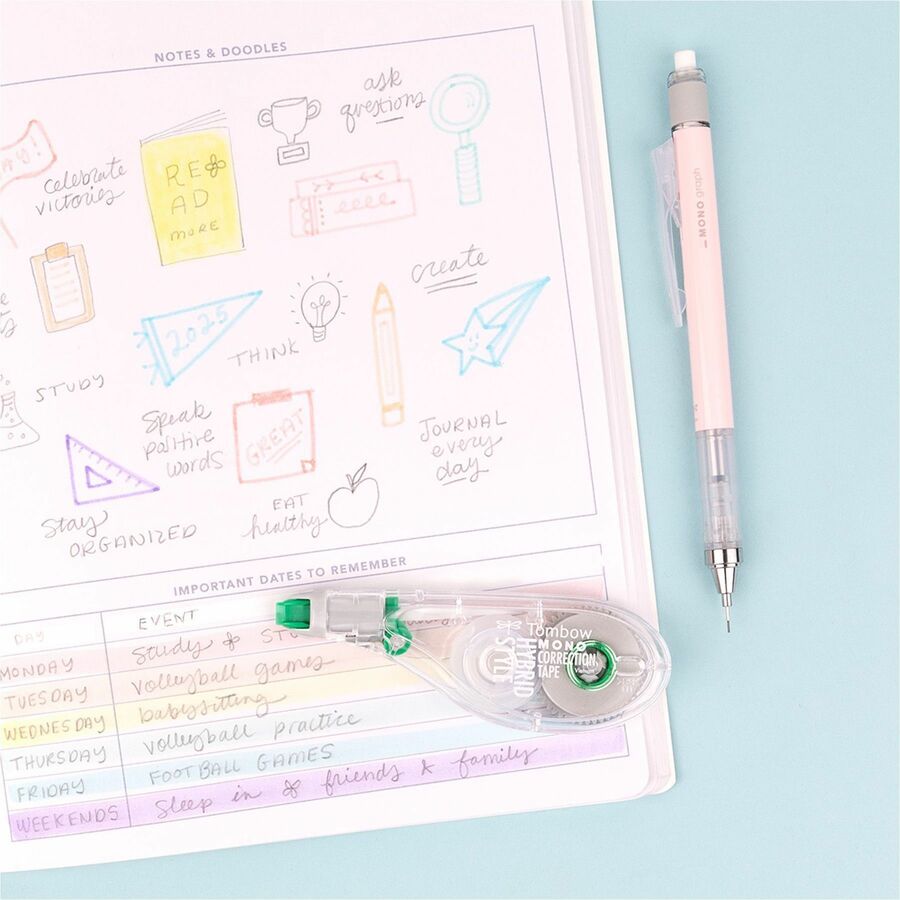 NOTES & DOODLES
ask
questions
celebrate
victories
RE
AD
MORE
create
2025
THINK
STUDY
Speak
positive
words
GREAT
JOURNAL
every
day
EAT
healthy
Stay
ORGANIZED
IMPORTANT DATES TO REMEMBER
DAY EVENT
MONDAY Study & STU
TUESDAY volleyball games
WEDNESDAY babysitting
THURSDAY volleyball practice
FRIDAY FOOTBALL GAMES
WEEKENDS Sleep in & friends & family
Tombow
MONO
CORRECTION
TAPE
HYBRID
STYLE
MONO graph